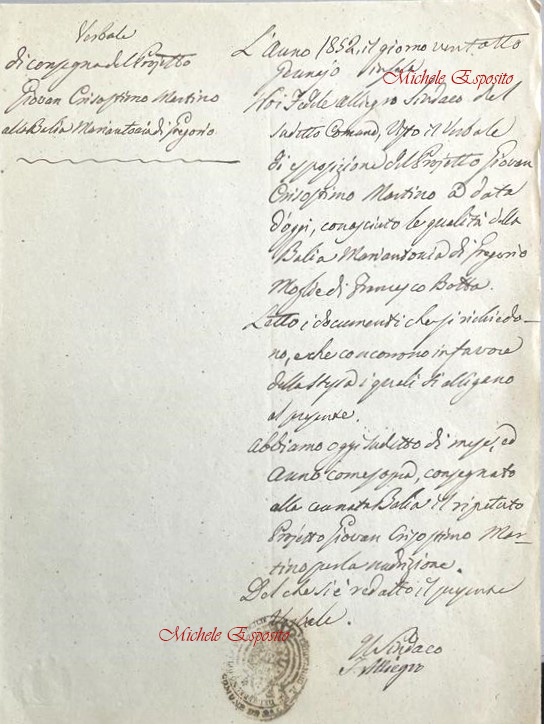 Verbale
di consegna del Projetto
Giovan Crisostimo Martino
alla Balia Mariantonia di Gregorio
L'Anno 1852, il giorno ventotto
Gennajo
Michele Esposito
Noi Fedele Allegro Sindaco del
sudetto Comune, Visto il Verbale
di esposizione del Projetto Giovan
Crisostimo Martino a data
d'oggi, conosciuto le qualità della
Balia Mariantonia di Gregorio
Moglie di Francesco Botta.
Letto i documenti che si richiedo-
no, e che concorrono in favore
della stessa i quali si alligano
al presente.
Abbiamo oggi sudetto dì mese, ed
Anno come sopra, consegnato
alla cennata Balia il ripetuto
Projetto Giovan Crisostimo Mar-
tino per la nudrizione.
Del che si è redatto il presente
Verbale.
Michele Esposito
Il Sindaco
F. Allegro